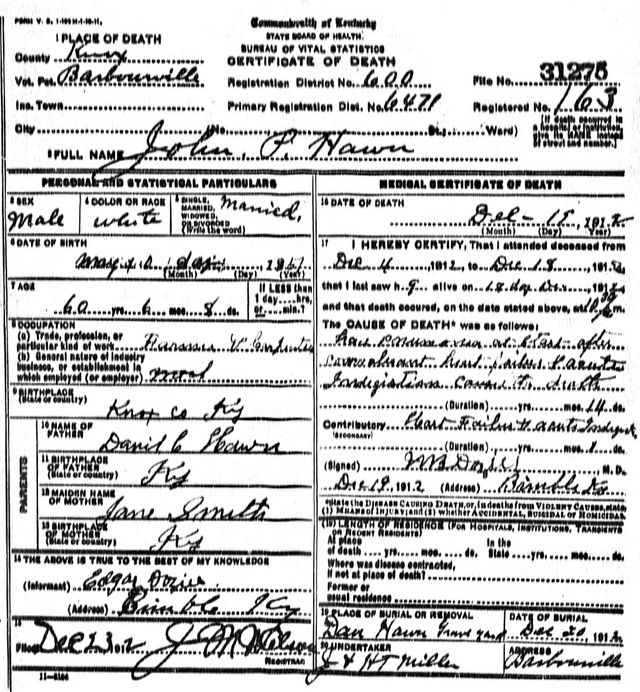 FORM V. S. 1-100M-1-10-11.
Commonwealth of Kentucky
STATE BOARD OF HEALTH.
BUREAU OF VITAL STATISTICS
CERTIFICATE OF DEATH
1 PLACE OF DEATH
County Knox
Vot. Pct. Barbourville
Inc. Town
City (No. St.; Ward)
Registration District No. 600
Primary Registration Dist. No. 6471
File No. 31275
Registered No. 163
[If death occurred in a hospital or institution, give its NAME instead of street and number.]
2 FULL NAME John P. Hawn
PERSONAL AND STATISTICAL PARTICULARS
3 SEX
Male
4 COLOR OR RACE
White
5 SINGLE, MARRIED, WIDOWED, OR DIVORCED (Write the word)
Married,
6 DATE OF BIRTH
(Month) (Day) (Year)
7 AGE
60 yrs. 6 mos. 8 ds.
If LESS than 1 day....hrs. or....min.?
8 OCCUPATION
(a) Trade, profession, or particular kind of work Farmer & Carpenter
(b) General nature of industry business, or establishment in which employed (or employer)
9 BIRTHPLACE
(State or country)
Knox co Ky
PARENTS
10 NAME OF FATHER
Daniel C Hawn
11 BIRTHPLACE OF FATHER
(State or country)
Ky
12 MAIDEN NAME OF MOTHER
Jane Smith
13 BIRTHPLACE OF MOTHER
(State or country)
Ky
14 THE ABOVE IS TRUE TO THE BEST OF MY KNOWLEDGE
(Informant) Edgar
(Address) Bimble Ky
15
Filed Dec 23 1912 J. M.
REGISTRAR
11-5184
MEDICAL CERTIFICATE OF DEATH
16 DATE OF DEATH
Dec - 18, 1912
(Month) (Day) (Year)
17 I HEREBY CERTIFY, That I attended deceased from
Dec 4, 1912, to Dec 18, 1912,
that I last saw h alive on 18 day Dec, 1912
and that death occurred, on the date stated above, at
The CAUSE OF DEATH* was as follows:
heart failure & acute
Indigestion caused his death
(Duration) yrs. mos. 14 ds.
Contributory Heart Failure & acute Indigest
(SECONDARY)
(Duration) yrs. mos. ds.
(Signed) M.D.
Dec 19, 1912 (Address) Bimble Ky
*State the DISEASE CAUSING DEATH, or, in deaths from VIOLENT CAUSES, state (1) MEANS of INJURY; and (2) whether ACCIDENTAL, SUICIDAL or HOMICIDAL
18 LENGTH OF RESIDENCE (FOR HOSPITALS, INSTITUTIONS, TRANSIENTS OR RECENT RESIDENTS)
At place of death yrs. mos. ds. In the State yrs. mos. ds.
Where was disease contracted,
if not at place of death?
Former or
usual residence
19 PLACE OF BURIAL OR REMOVAL
Dan Hawn Grave yard
DATE OF BURIAL
Dec 20, 1912
20 UNDERTAKER
J & HT Miller
ADDRESS
Barbourville